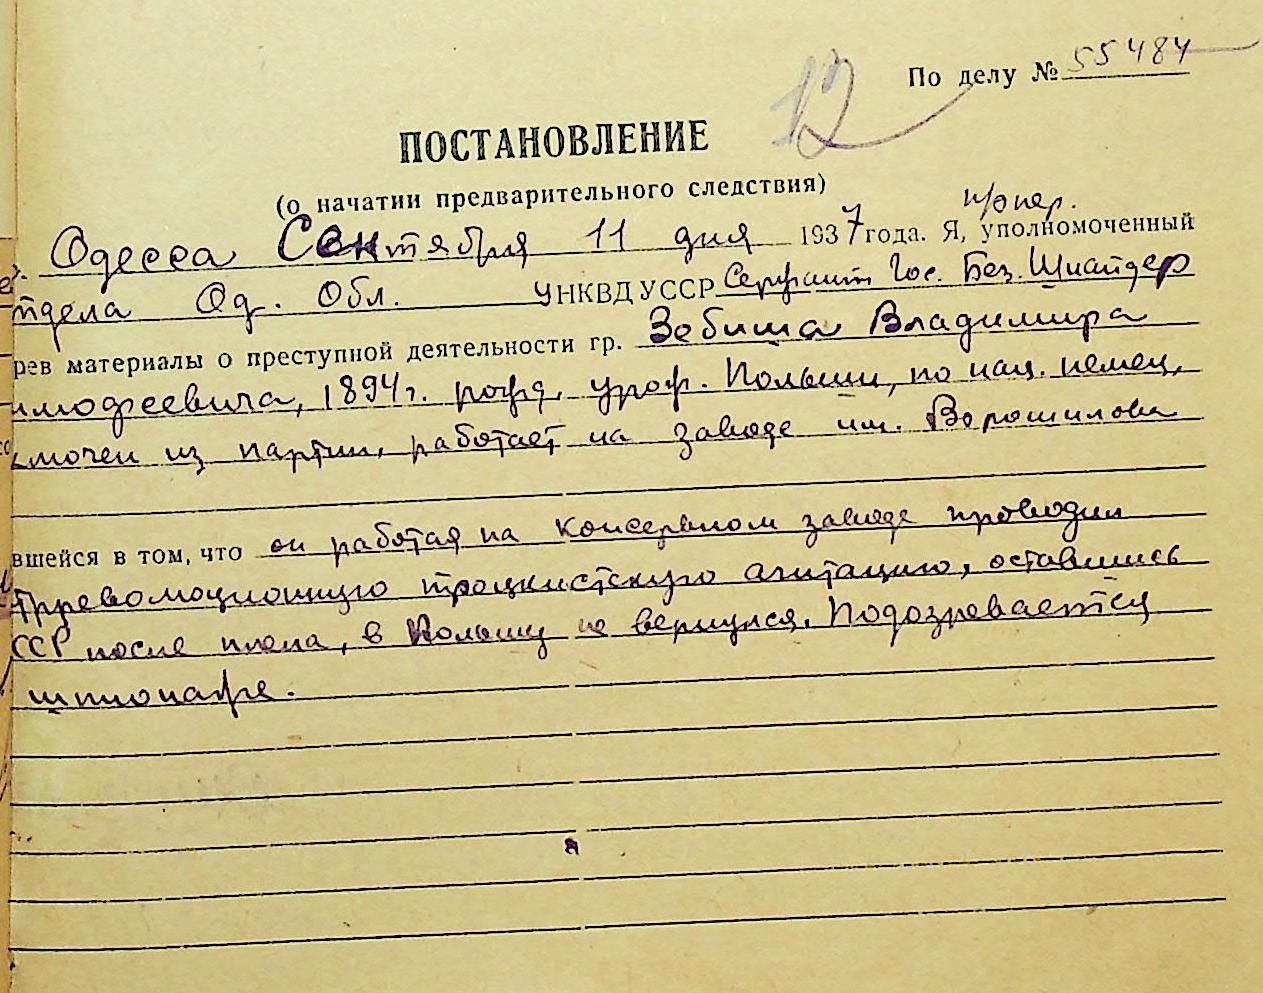 По делу № 55484
12
ПОСТАНОВЛЕНИЕ
(о начатии предварительного следствия)
п/опер.
г. Одесса Сентября 11 дня 1937 года. Я, уполномоченный
тдела Од. Обл. УНКВД УССР Сержант Гос. Без. Шнайдер
рев материалы о преступной деятельности гр. Зебиша Владимира
имофеевича, 1894 г. рожд, урож. Польши, по нац. немец,
ключен из партии, работает на заводе им. Ворошилова
вшейся в том, что он работая на Консервном заводе проводил
трреволюционную троцкистскую агитацию, оставшись
СССР после плена, в Польшу не вернулся. Подозревается
шпионаже.